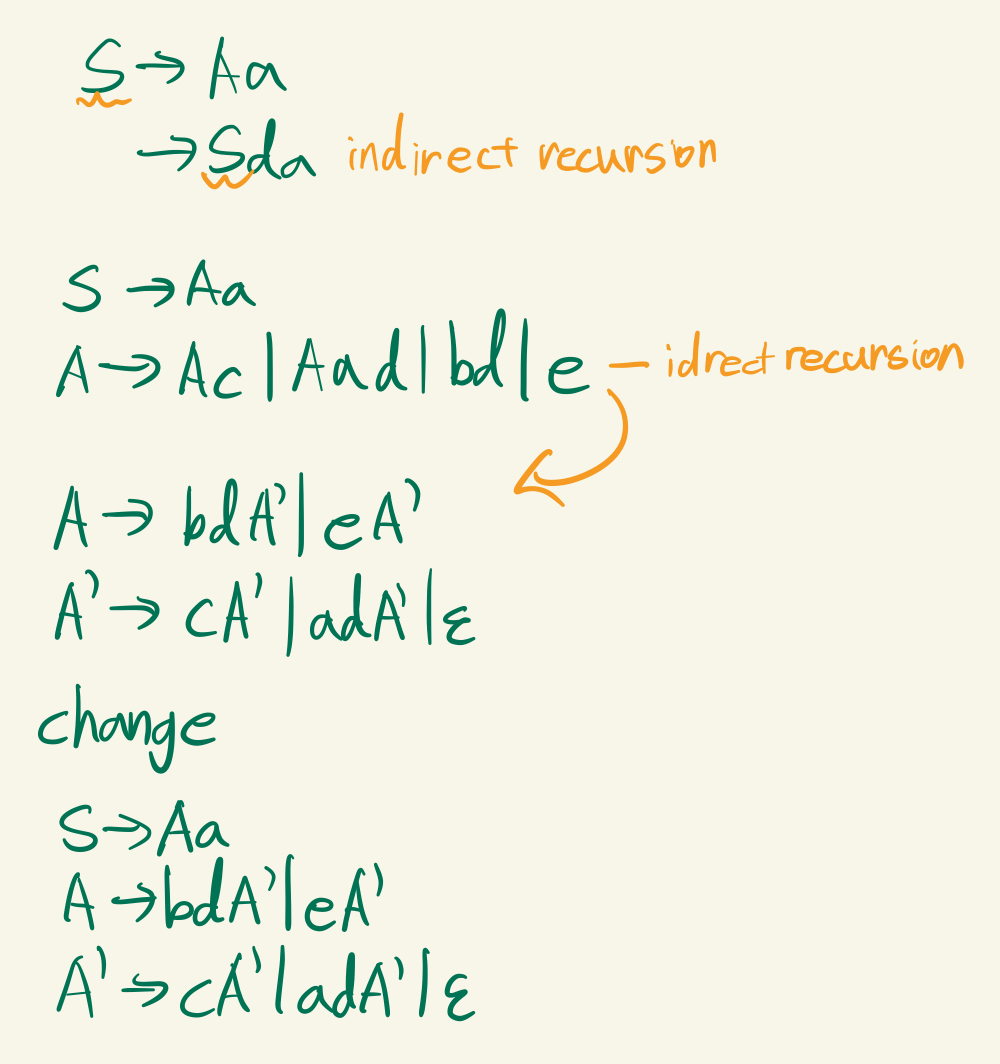 S → Aa
→ Sda indirect recursion
S → Aa
A → Ac | Aad | bd | e — idrect recursion
A → bdA' | eA'
A' → cA' | adA' | ε
change
S → Aa
A → bdA' | eA'
A' → cA' | adA' | ε